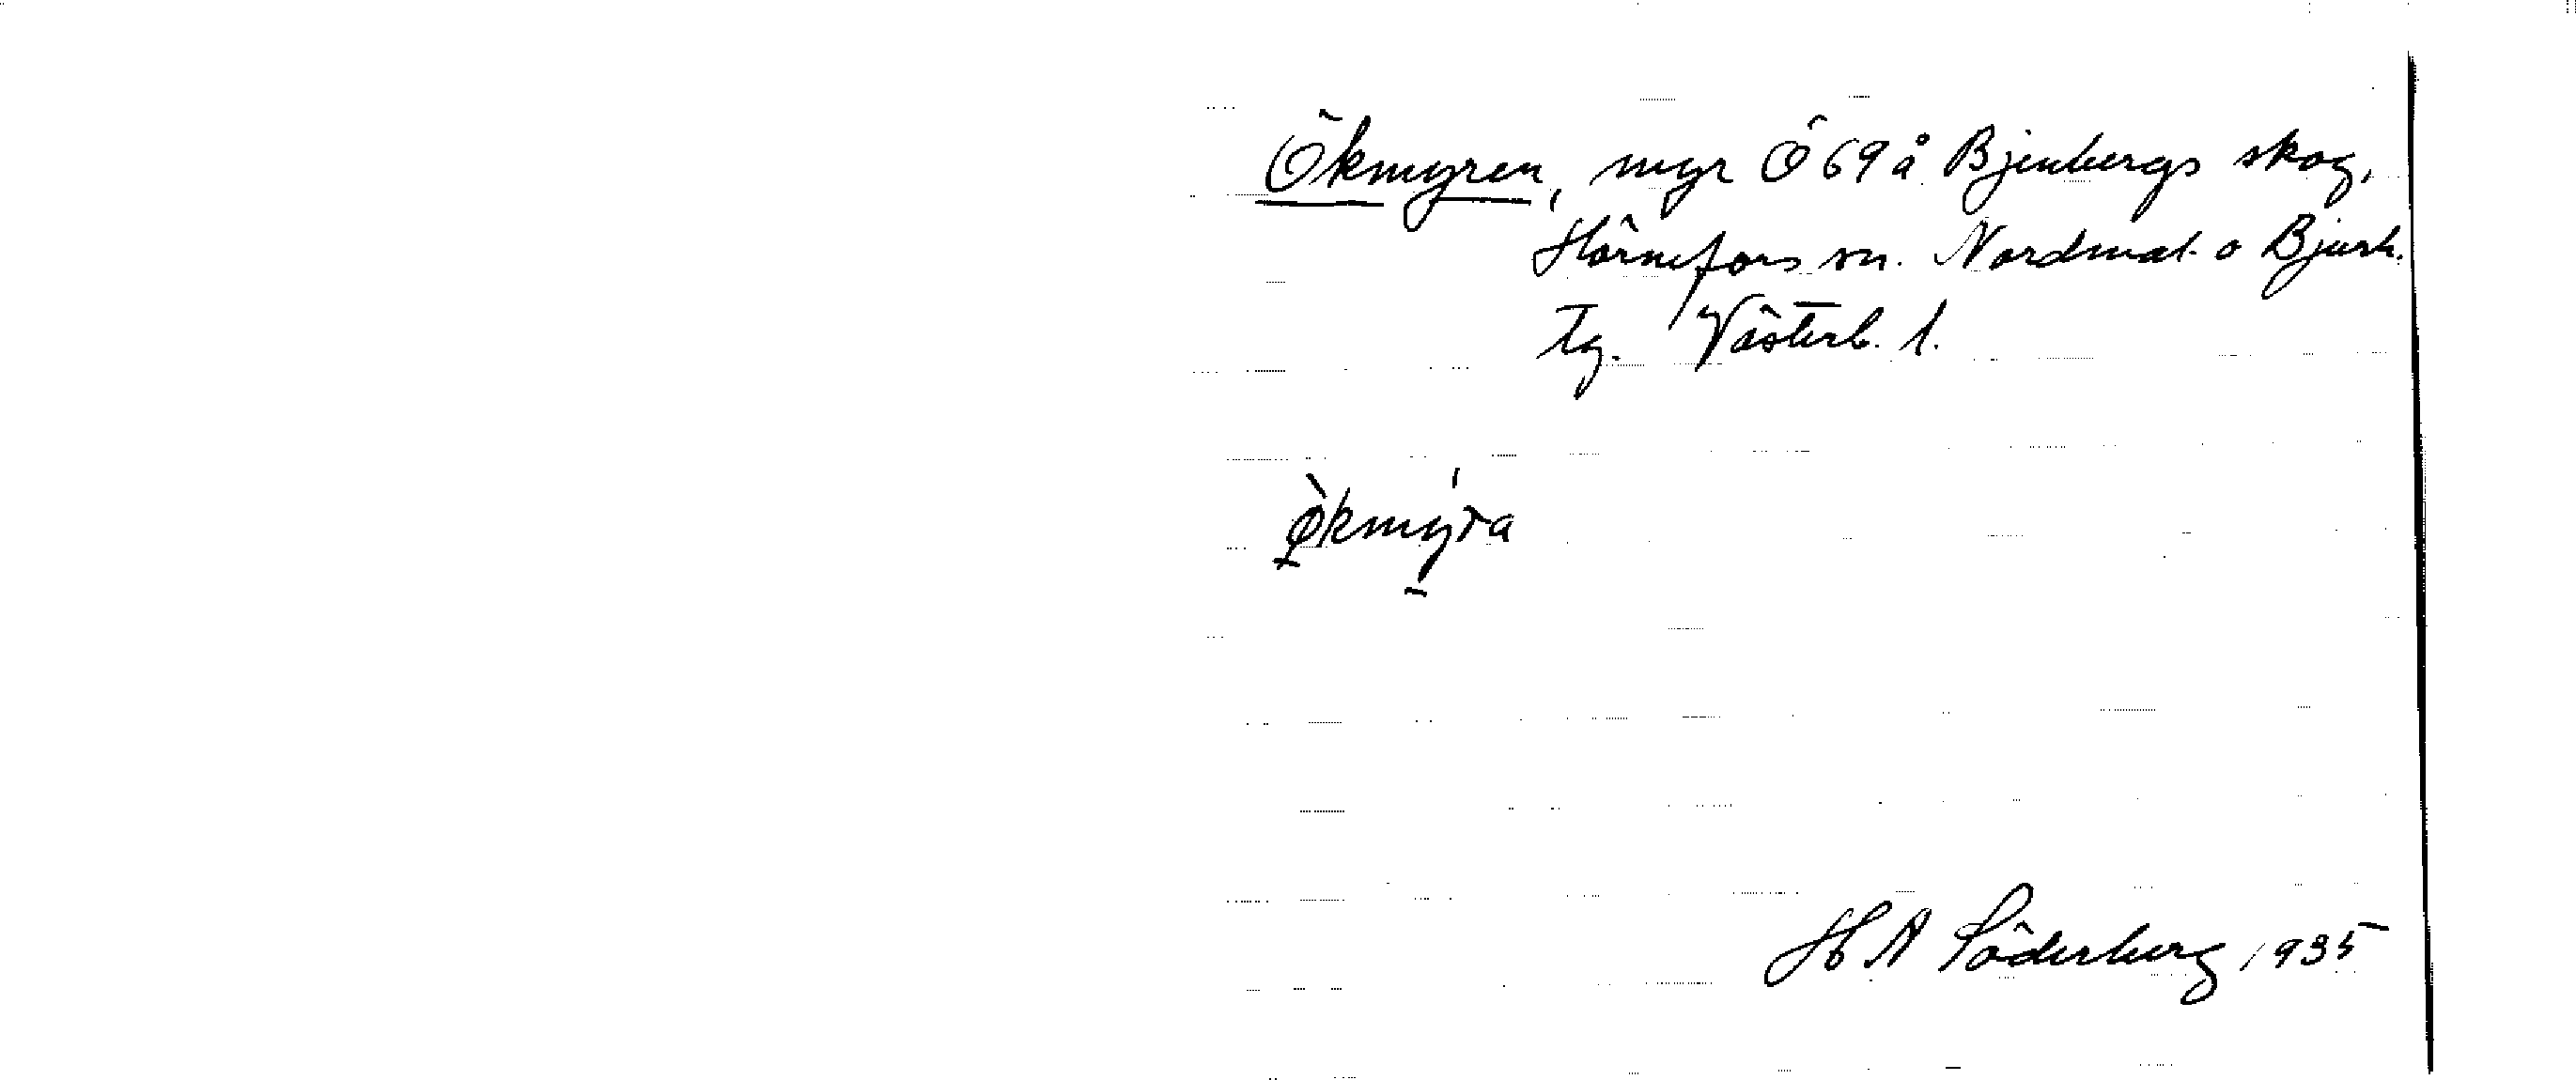 Ökmyren, myr Ö 69 å Bjenbergs skog,
Hörnefors sn. Nordmal. o Bjurh.
tg. Västerb. l.
ø̀kmy̆́ra
H A Söderberg 1935